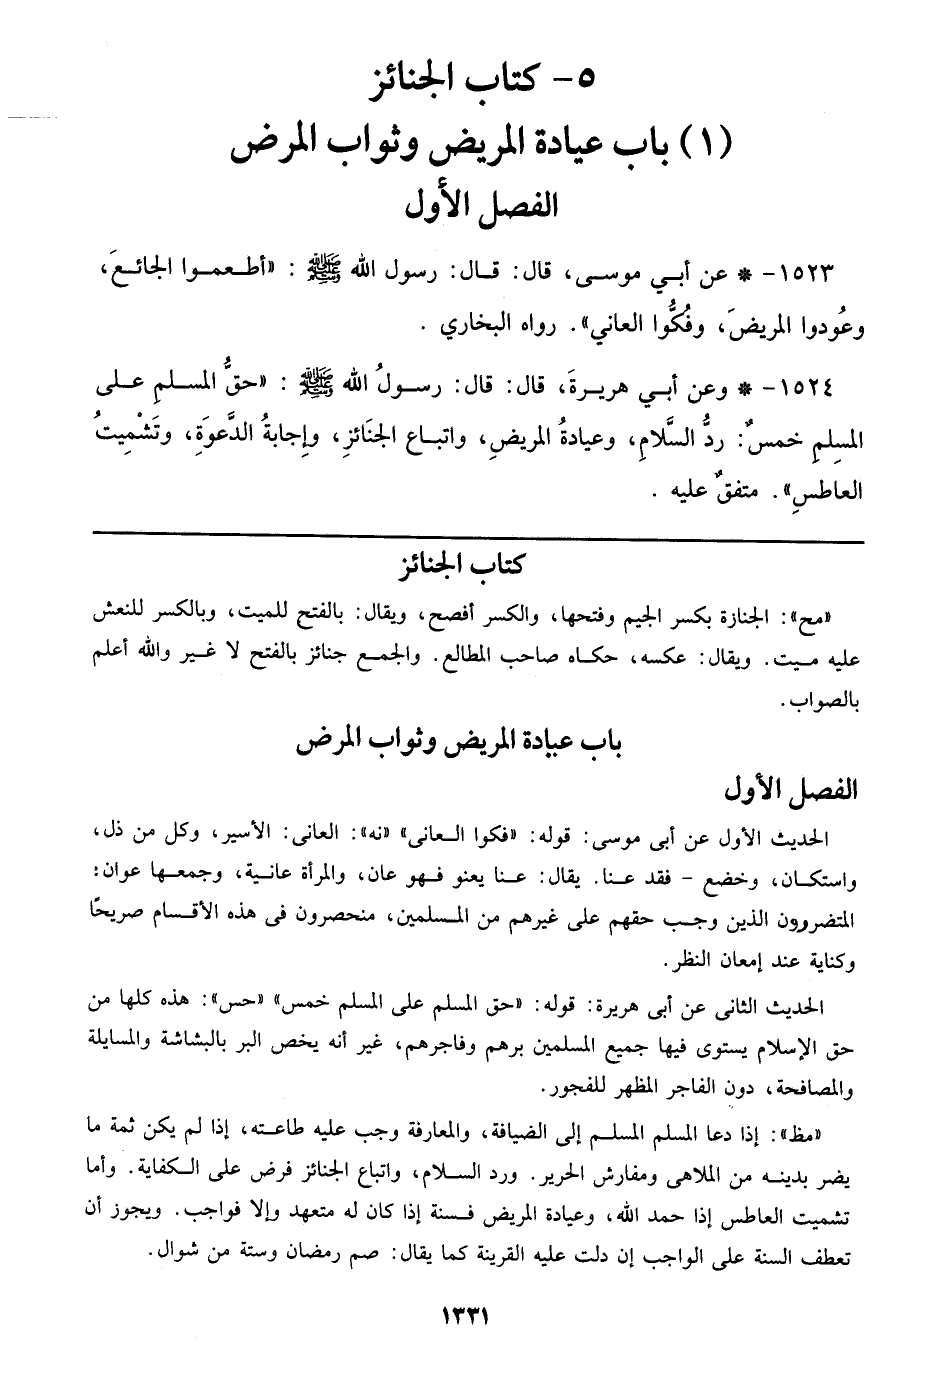 ٥- كتاب الجنائز
(١) باب عيادة المريض وثواب المرض
الفصل الأول
١٥٢٣- * عن أبي موسى، قال: قال: رسول الله ﷺ : «أطعموا الجائعَ،
وعُودوا المريضَ، وفُكُّوا العاني». رواه البخاري .
١٥٢٤- * وعن أبي هريرةَ، قال: قال: رسولُ الله ﷺ : «حقُّ المسلمِ على
المسلِمِ خمسٌ: ردُّ السَّلامِ، وعيادةُ المريضِ، واتباع الجنَائزِ، وإجابةُ الدَّعوَةِ، وتَشْمِيتُ
العاطسِ». متفقٌ عليه .
كتاب الجنائز
«مح»: الجنازة بكسر الجيم وفتحها، والكسر أفصح، ويقال: بالفتح للميت، وبالكسر للنعش
عليه ميت. ويقال: عكسه، حكاه صاحب المطالع. والجمع جنائز بالفتح لا غير والله أعلم
بالصواب.
باب عيادة المريض وثواب المرض
الفصل الأول
الحديث الأول عن أبى موسى: قوله: «فكوا العانى» «نه»: العانى: الأسير، وكل من ذل،
واستكان، وخضع – فقد عنا. يقال: عنا يعنو فهو عان، والمرأة عانية، وجمعها عوان؛
المتضررون الذين وجب حقهم على غيرهم من المسلمين، منحصرون فى هذه الأقسام صريحًا
وكناية عند إمعان النظر.
الحديث الثانى عن أبى هريرة: قوله: «حق المسلم على المسلم خمس» «حس»: هذه كلها من
حق الإسلام يستوى فيها جميع المسلمين برهم وفاجرهم، غير أنه يخص البر بالبشاشة والمسايلة
والمصافحة، دون الفاجر المظهر للفجور.
«مظ»: إذا دعا المسلم المسلم إلى الضيافة، والمعارفة وجب عليه طاعته، إذا لم يكن ثمة ما
يضر بدينه من الملاهى ومفارش الحرير. ورد السلام، واتباع الجنائز فرض على الكفاية. وأما
تشميت العاطس إذا حمد الله، وعيادة المريض فسنة إذا كان له متعهد وإلا فواجب. ويجوز أن
تعطف السنة على الواجب إن دلت عليه القرينة كما يقال: صم رمضان وستة من شوال.
١٣٣١